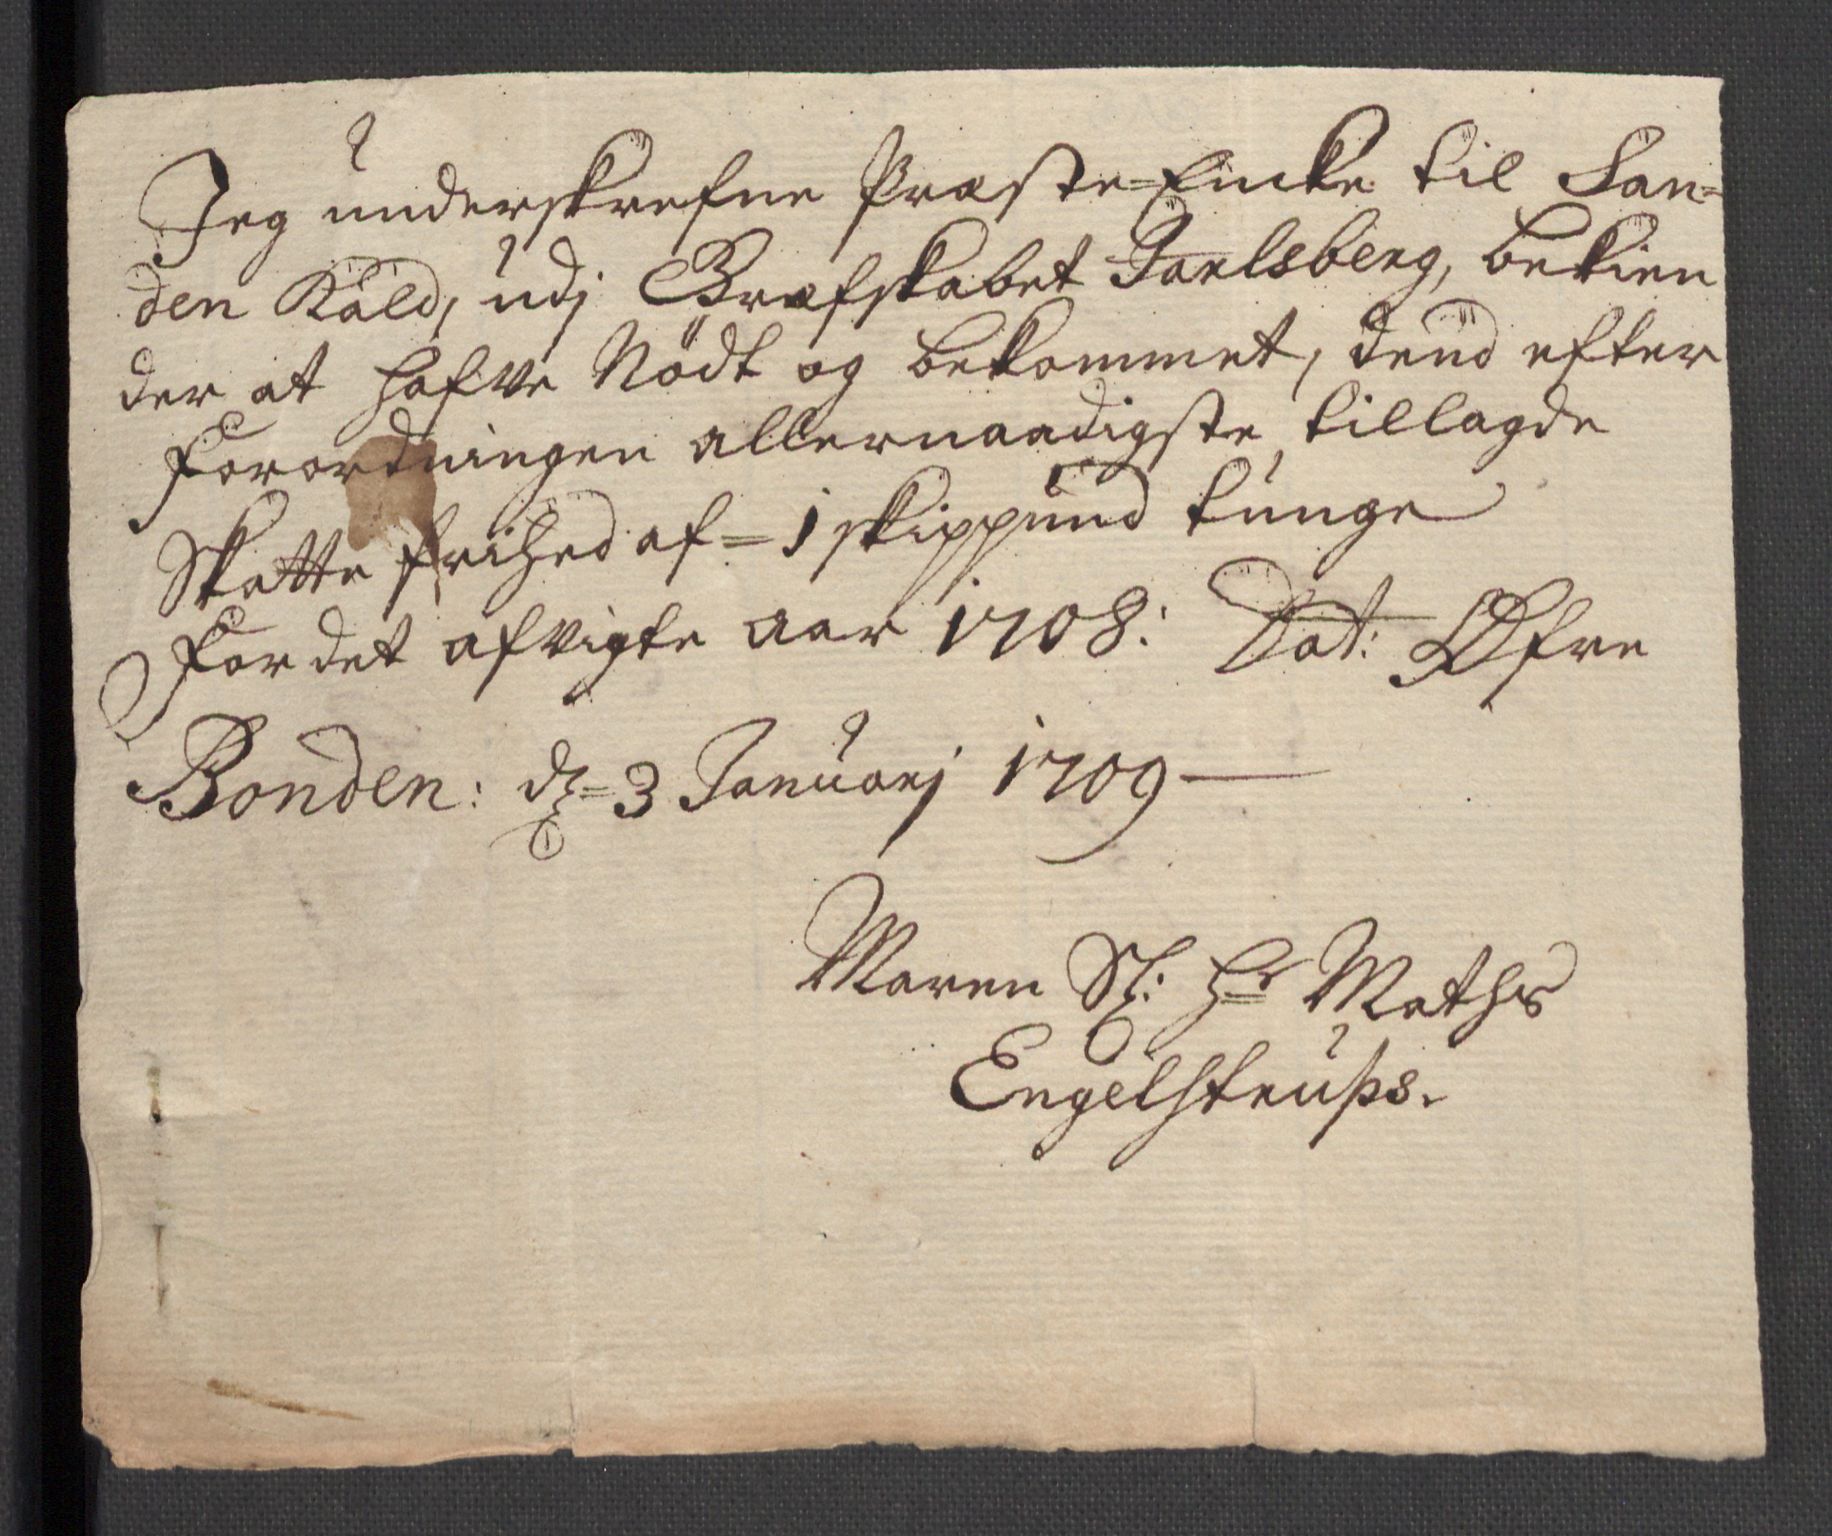 Jeg underskrefne Præste-Encke til San-
den Kald, udj Grefskabet Jarlsberg, bekien
der at hafve Nødt og bekommet, dend efter
Forordningen allernaadigste tillagde
Skatte frihed af = 1 skippund tunge
For det afvigte aar 1708: Dat: Øfre
Bonden: d: = 3 Januarj 1709
Maren Sl: Hr Maths
Engelstrups.